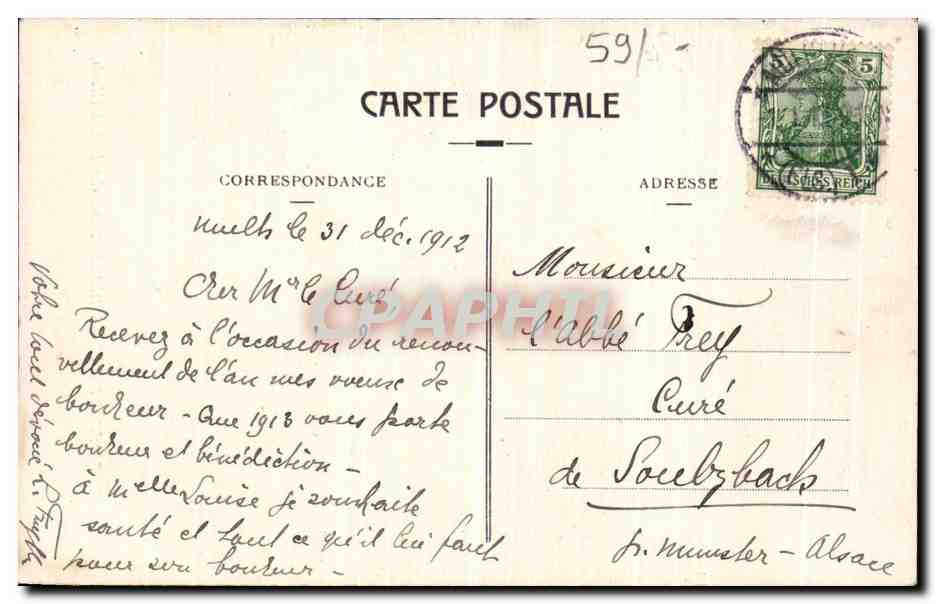 59/
CARTE POSTALE
CORRESPONDANCE
ADRESSE
5
DEUTSCHES REICH
CPAPHIL
le 31 déc. 1912
Cher Mr le Curé
Recevez à l'occasion du renou-
vellement de l'an mes voeux de
bonheur – Que 1913 vous porte
bonheur et bénédiction –
à Melle Louise je souhaite
santé et tout ce qu'il lui faut
pour son bonheur –
Votre tout dévoué
Monsieur
l'Abbé Frey
Curé
de Soulzbach
p. Munster – Alsace